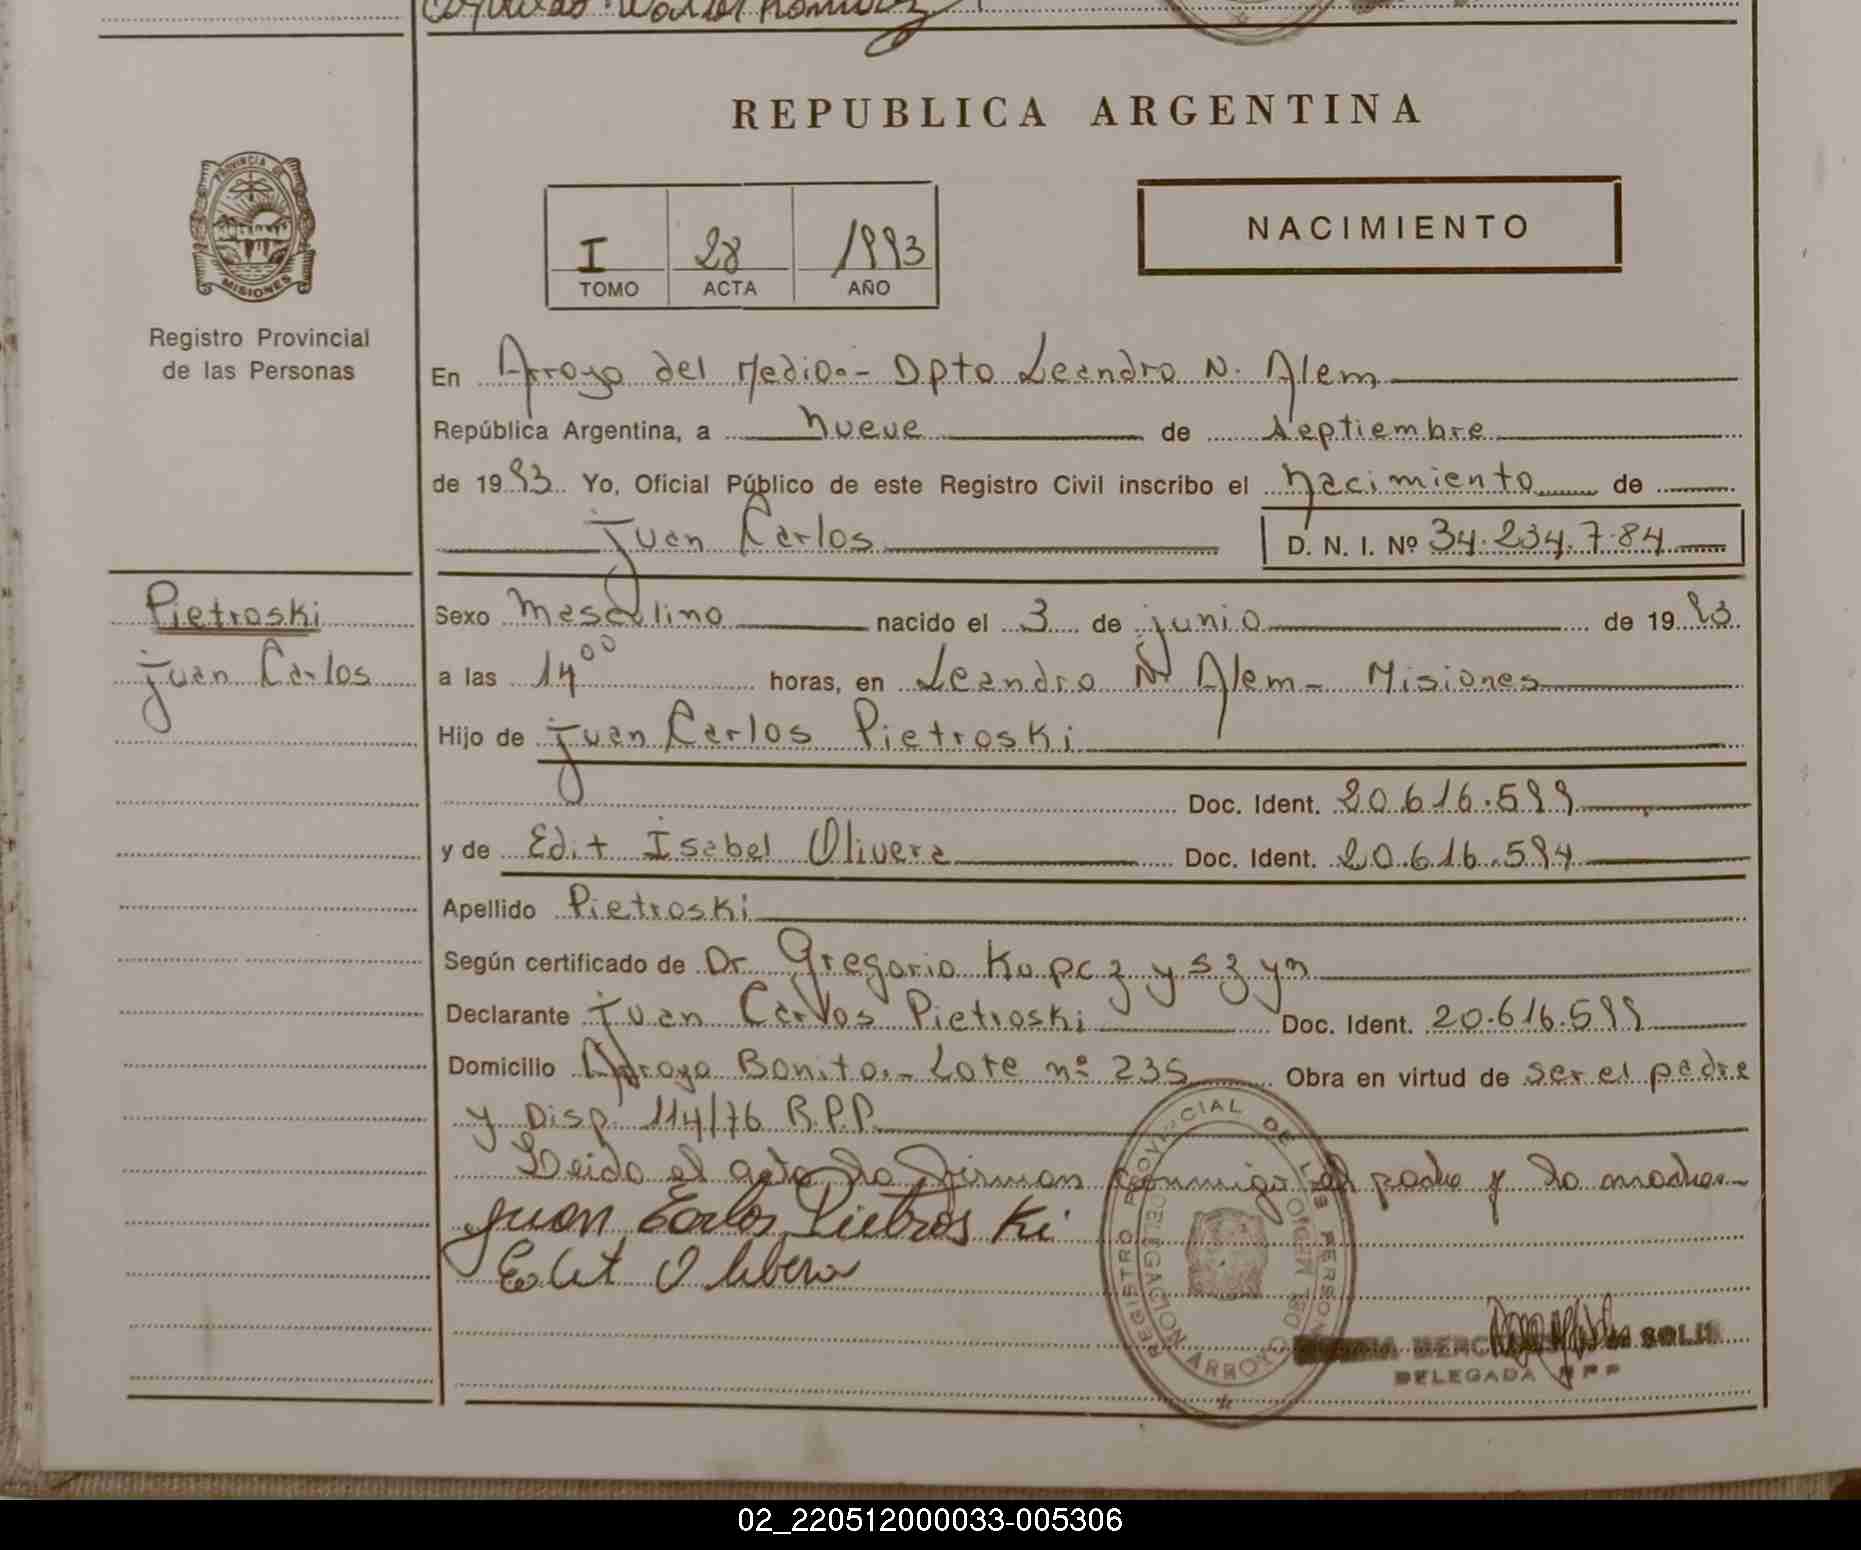 REPUBLICA ARGENTINA
PROVINCIA DE
MISIONES
Registro Provincial
de las Personas
I 28 1993
TOMO ACTA AÑO
NACIMIENTO
En Arroyo del Medio.- Dpto Leandro N. Alem
República Argentina, a nueve de septiembre
de 1993 Yo, Oficial Público de este Registro Civil inscribo el nacimiento de
Juan Carlos D. N. I. Nº 34.234.784
Pietroski
Juan Carlos
Sexo Masculino nacido el 3 de junio de 1993
a las 14⁰⁰ horas, en Leandro N. Alem - Misiones
Hijo de Juan Carlos Pietroski
Doc. Ident. 20.616.599
y de Edit Isabel Olivera Doc. Ident. 20.616.594
Apellido Pietroski
Según certificado de Dr. Gregorio Kupczyszyn
Declarante Juan Carlos Pietroski Doc. Ident. 20.616.599
Domicilio Arroyo Bonito.- Lote nº 235 Obra en virtud de ser el padre
y Disp. 114/76 R.P.P.
Leida el acta la firman conmigo el padre y la madre.-
Juan Carlos Pietroski
Edit Olibera
REGISTRO PROVINCIAL DE LAS PERSONAS
DELEGACION ARROYO DEL MEDIO
SOLIS
DELEGADA RPP
02_220512000033-005306